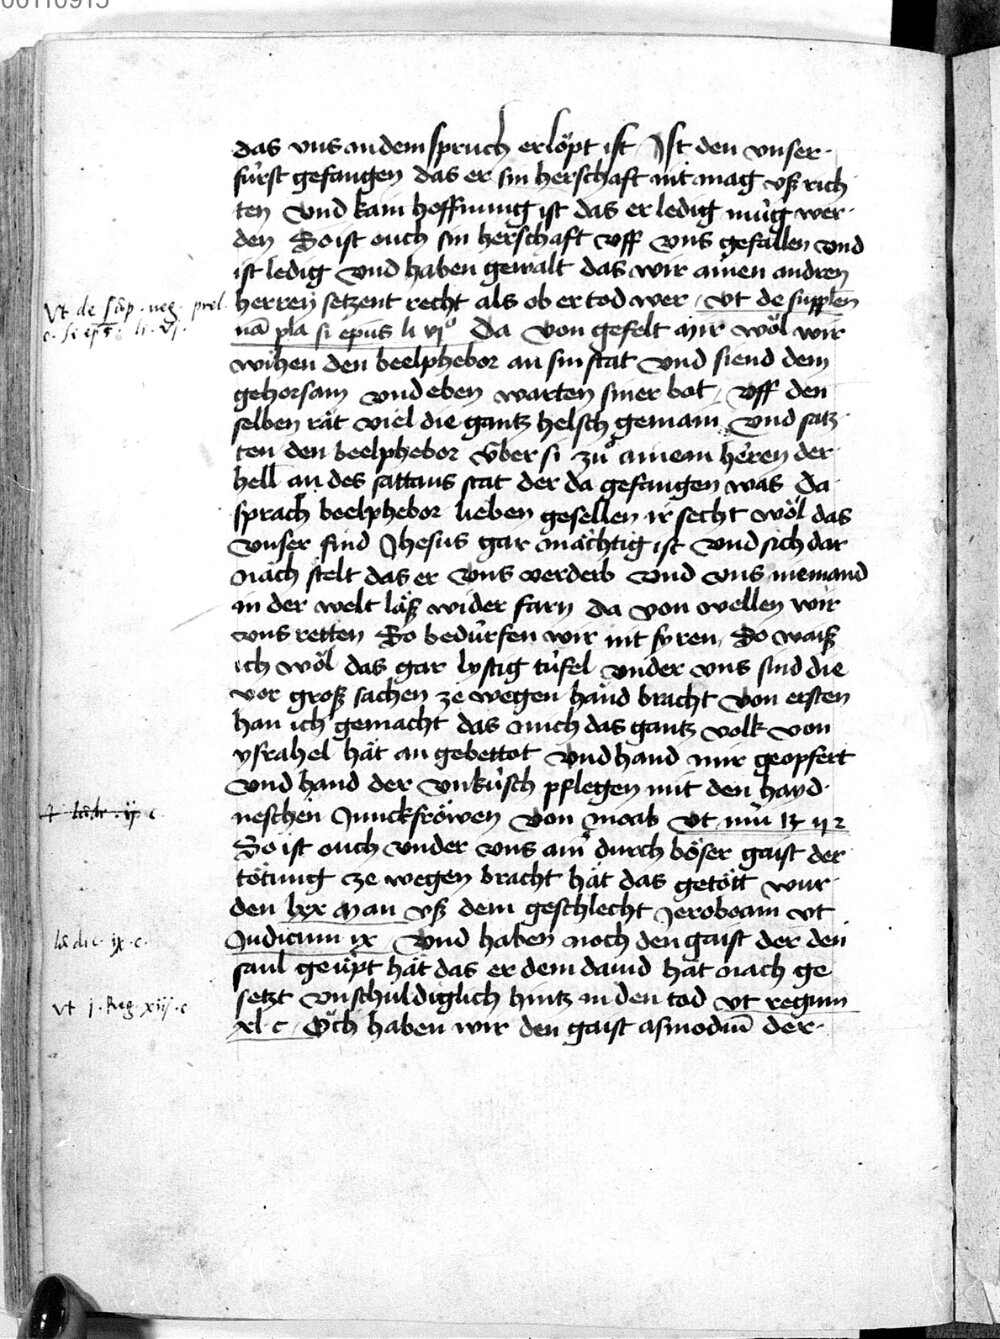 00110915
das vns an dem spruch erlöpt ist Ist den vnser
fürst gefangen das er sin herschaft nit mag vß rich
ten Vnd kain hoffnung ist das er ledig müg wer
den So ist ouch sin herschaft vff vns gefallen vnd
ist ledig vnd haben gewalt das wir ainen andren
herren setzent recht als ob er tod wer vt de supplen
Vt de sup. neg. prel.
nā pla si epūs li vjº Da von gefelt mir wöl wir
c. si epūs li. vj.
wihen den beelphebor an sin stat vnd siend dem
gehorsam vnd eben warten siner bot vff den
selben rät viel die gantz helsch gemain Vnd satz
ten den beelphebor über si zů ainem heren der
hell an des sattans stat der da gefangen was Da
sprach beelphebor lieben gesellen ir secht wöl das
vnser find Jhesus gar mächtig ist vnd sich dar
nach stelt das er vns verderb vnd vns niemand
in der welt läß wider farn da von wellen wir
vns retten So bedürfen wir nit fyren So waiß
ich wöl das gar lystig tüfel vnder vns sind die
vor groß sachen ze wegen hand bracht von ersten
han ich gemacht das mich das gantz volk von
ysrahel hät an gebettot vnd hand mir geopfert
vnd hand der vnküsch pflegen mit den hayd
neschen Junckfröwen von moab vt
So ist ouch vnder vns ain durch böser gaist der
tötung ze wegen bracht hät das getött wur
den lxx man vß dem geschlecht Jeroboam vt
Judicum ix Vnd haben noch den gaist der den
ix. c.
saul geüpt hät das er dem dauid hät nach ge
setzt vnschuldiglich hintz in den tod vt regum
vt j. Reg. xiij. c
xl c Och haben wir den gaist asmodium der